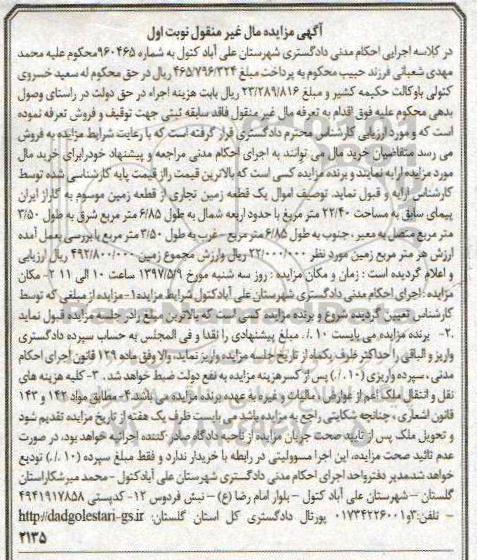 آگهی مزایده مال غیر منقول نوبت اول
در کلاسه اجرایی احکام مدنی دادگستری شهرستان علی آباد کتول به شماره ۹۶۰۴۶۵محکوم علیه محمد
مهدی شعبانی فرزند حبیب محکوم به پرداخت مبلغ ۴۶۵/۷۹۶/۳۲۴ ریال در حق محکوم له سعید خسروی
کتولی باوکالت حکیمه کشیر و مبلغ ۲۳/۲۸۹/۸۱۶ ریال بابت هزینه اجراء در حق دولت در راستای وصول
بدهی محکوم علیه فوق اقدام به تعرفه مال غیر منقول فاقد سابقه ثبتی جهت توقیف و فروش تعرفه نموده
است که و مورد ارزیابی کارشناس محترم دادگستری قرار گرفته است که با رعایت شرایط مزایده به فروش
می رسد متقاضیان خرید مال می توانند به اجرای احکام مدنی مراجعه و پیشنهاد خودرابرای خرید مال
مورد مزایده ارایه نمایند و برنده مزایده کسی است که بالاترین قیمت رااز قیمت پایه کارشناسی شده توسط
کارشناس ارایه و قبول نماید. توصیف اموال یک قطعه زمین تجاری از قطعه زمین موسوم به گاراژ ایران
پیمای سابق به مساحت ۲۲/۴۰ متر مربع با حدود اربعه شمال به طول ۶/۸۵ متر مربع شرق به طول ۳/۵۰
متر مربع متصل به معبر، جنوب به طول ۶/۸۵ متر مربع - غرب به طول ۳/۵۰ متر مربع با بررسی بعمل آمده
ارزش هر متر مربع زمین مورد نظر ۲۲/۰۰۰/۰۰۰ ریال وارزش مجموع زمین ۴۹۲/۸۰۰/۰۰۰ ریال ارزیابی
و اعلام گردیده است : زمان و مکان مزایده : روز سه شنبه مورخ ۱۳۹۷/۵/۹ ساعت ۱۰ الی ۱۱ ۲- مکان
مزایده : اجرای احکام مدنی دادگستری شهرستان علی آبادکتول شرایط مزایده۱- مزایده از مبلغی که توسط
کارشناس تعیین گردیده شروع و برنده مزایده کسی است که بالاترین مبلغ رادر جلسه مزایده قبول نماید
.۲- برنده مزایده می بایست ۱۰٪. مبلغ پیشنهادی را نقدا و فی المجلس به حساب سپرده دادگستری
واریز و الباقی را حداکثر ظرف یکماه از تاریخ جلسه مزایده واریز نماید، والا وفق ماده ۱۲۹ قانون اجرای احکام
مدنی ، سپرده واریزی (۱۰٪.) پس از کسر هزینه مزایده به نفع دولت ضبط خواهد شد . ۳- کلیه هزینه های
نقل و انتقال ملک اعم از عوارض ، مالیات و غیره به عهده برنده مزایده می باشد.۴- مطابق مواد ۱۴۲ و ۱۴۳
قانون اشعاری ، چنانچه شکایتی راجع به مزایده باشد می بایست ظرف یک هفته از تاریخ مزایده تقدیم شود
و تحویل ملک پس از تایید صحت جریان مزایده از ناحیه دادگاه صادر کننده اجرائیه خواهد بود، در صورت
عدم تائید صحت مزایده، این اجرا مسوولیتی در رابطه با خریدار ندارد و فقط مبلغ سپرده (۱۰٪.) تودیع
خواهد شد.مدیر دفترواحد اجرای احکام مدنی دادگستری شهرستان علی آباد کتول - محمد میرشکار استان
گلستان – شهرستان علی آباد کتول – بلوار امام رضا (ع) – نبش فردوس ۱۲- کدپستی ۴۹۴۱۹۱۷۸۵۸
- تلفن:۳و۰۱۷۳۴۲۲۶۰۰۱ پورتال دادگستری کل استان گلستان: http://dadgolestari-gs.ir
۲۱۳۵